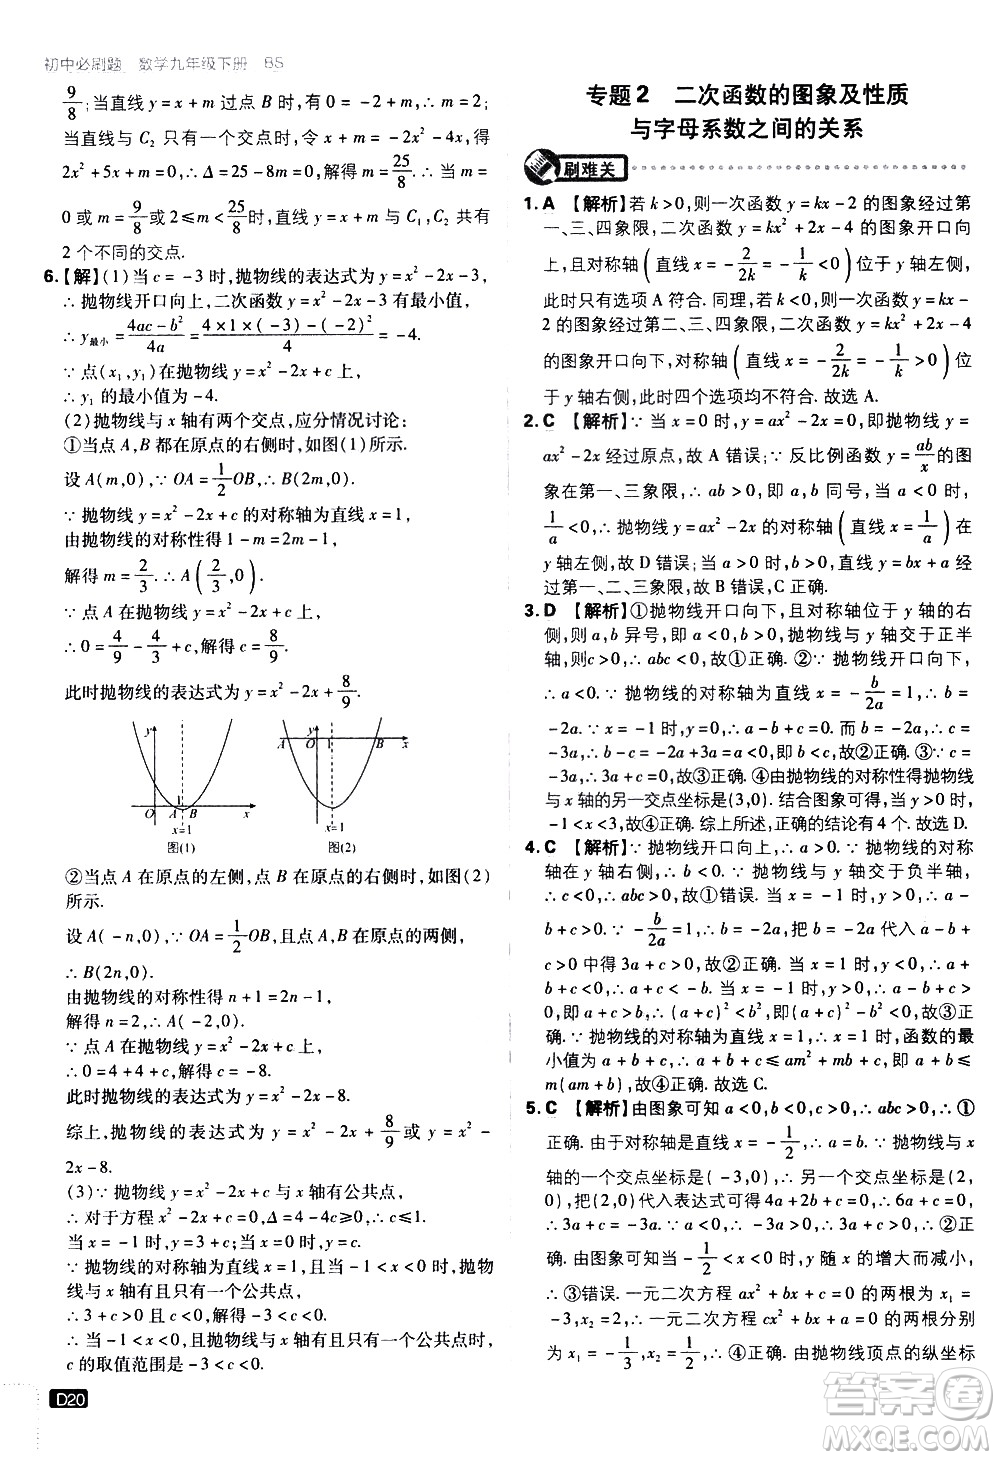 初中必刷题 数学九年级下册 BS
9/8;当直线 y = x + m 过点 B 时,有 0 = -2 + m,∴ m = 2,
当直线与 C₂ 只有一个交点时,令 x + m = -2x² - 4x,得
2x² + 5x + m = 0,∴ Δ = 25 - 8m = 0,∴ m = 25/8,∴ 当
0 < m < 9/8 或 2 ≤ m < 25/8 时,直线 y = x + m 与 C₁,C₂ 共有
2 个不同的交点.
6.【解】(1)当 c = -3 时,抛物线的表达式为 y = x² - 2x - 3,
∴ 抛物线开口向上,二次函数 y = x² - 2x - 3 有最小值,
∴ y最小 = (4ac - b²)/4a = (4×1×(-3) - (-2)²)/4 = -4.
∵ 点(x₁,y₁)在抛物线 y = x² - 2x - 3 上,
∴ y₁ 的最小值为 -4.
(2)抛物线与 x 轴有两个交点,应分情况讨论:
①当点 A,B 都在原点的右侧时,如图(1)所示.
设 A(m,0),∵ OA = 1/2 OB,∴ B(2m,0).
∵ 抛物线 y = x² - 2x + c 的对称轴为直线 x = 1,
由抛物线的对称性得 1 - m = 2m - 1,
解得 m = 2/3. ∴ A(2/3,0).
∵ 点 A 在抛物线 y = x² - 2x + c 上,
∴ 0 = 4/9 - 4/3 + c,∴ c = 8/9.
此时抛物线的表达式为 y = x² - 2x + 8/9.
y O A 1 B x x=1 图(1)
y A O 1 B x x=1 图(2)
②当点 A 在原点的左侧,点 B 在原点的右侧时,如图(2)
所示.
设 A(-n,0),∵ OA = 1/2 OB,且点 A,B 在原点的两侧,
∴ B(2n,0).
由抛物线的对称性得 n + 1 = 2n - 1,
解得 n = 2,∴ A(-2,0).
∵ 点 A 在抛物线 y = x² - 2x + c 上,
∴ 0 = 4 + 4 + c,∴ c = -8.
此时抛物线的表达式为 y = x² - 2x - 8.
综上,抛物线的表达式为 y = x² - 2x + 8/9 或 y = x² -
2x - 8.
(3)∵ 抛物线 y = x² - 2x + c 与 x 轴有公共点,
∴ 对于方程 x² - 2x + c = 0,Δ = 4 - 4c ≥ 0,∴ c ≤ 1.
当 x = -1 时,y = 3 + c;当 x = 0 时,y = c.
∵ 抛物线的对称轴为直线 x = 1,且当 -1 < x < 0 时,抛物
线与 x 轴有且只有一个公共点,
∴ 3 + c > 0 且 c < 0,解得 -3 < c < 0.
∴ 当 -1 < x < 0,且抛物线与 x 轴有且只有一个公共点时,
c 的取值范围是 -3 < c < 0.
D20
专题2 二次函数的图象及性质
与字母系数之间的关系
刷难关
1. A 【解析】若 k > 0,则一次函数 y = kx - 2 的图象经过第
一、三、四象限,二次函数 y = kx² + 2x - 4 的图象开口向
上,且对称轴(直线 x = -2/2k = -1/k < 0)位于 y 轴左侧,
此时只有选项 A 符合. 同理,若 k < 0,则一次函数 y = kx -
2 的图象经过第二、三、四象限,二次函数 y = kx² + 2x - 4
的图象开口向下,对称轴(直线 x = -2/2k = -1/k > 0)位
于 y 轴右侧,此时四个选项均不符合. 故选 A.
2. C 【解析】∵ 当 x = 0 时,y = ax² - 2x = 0,即抛物线 y =
ax² - 2x 经过原点,故 A 错误;∵ 反比例函数 y = ab/x 的图
象在第一、三象限,∴ ab > 0,即 a,b 同号,当 a < 0 时,
1/a < 0,∴ 抛物线 y = ax² - 2x 的对称轴(直线 x = 1/a)在
y 轴左侧,故 D 错误;当 a > 0 时,b > 0,直线 y = bx + a 经
过第一、二、三象限,故 B 错误,C 正确.
3. D 【解析】①抛物线开口向下,且对称轴位于 y 轴的右
侧,则 a,b 异号,即 a < 0,b > 0,抛物线与 y 轴交于正半
轴,则 c > 0,∴ abc < 0,故①正确. ②∵ 抛物线开口向下,
∴ a < 0. ∵ 抛物线的对称轴为直线 x = -b/2a = 1,∴ b =
-2a. ∵ x = -1 时,y = 0,∴ a - b + c = 0. 而 b = -2a,∴ c =
-3a,∴ b - c = -2a + 3a = a < 0,即 b < c,故②正确. ③∵ c =
-3a,∴ 3a + c = 0,故③正确. ④由抛物线的对称性得抛物线
与 x 轴的另一交点坐标是(3,0). 结合图象可得,当 y > 0 时,
-1 < x < 3,故④正确. 综上所述,正确的结论有 4 个. 故选 D.
4. C 【解析】∵ 抛物线开口向上,∴ a > 0. ∵ 抛物线的对称
轴在 y 轴右侧,∴ b < 0. ∵ 抛物线与 y 轴交于负半轴,
∴ c < 0,∴ abc > 0,故①错误. ∵ 当 x = -1 时,y > 0,∴ a -
b + c > 0. ∵ -b/2a = 1,∴ b = -2a,把 b = -2a 代入 a - b +
c > 0 中得 3a + c > 0,故②正确. ∵ 当 x = 1 时,y < 0,∴ a +
b + c < 0,∴ a + c < -b. ∵ a - b + c > 0,∴ a + c > b,
∴ b < a + c < -b,∴ |a + c| < |b|,∴ (a + c)² < b²,故③正
确. ∵ 抛物线的对称轴为直线 x = 1,∴ x = 1 时,函数的最
小值为 a + b + c,∴ a + b + c ≤ am² + mb + c,即 a + b ≤
m(am + b),故④正确. 故选 C.
5. C 【解析】由图象可知 a < 0,b < 0,c > 0,∴ abc > 0,∴ ①
正确. 由于对称轴是直线 x = -1/2,∴ a = b. ∵ 抛物线与 x
轴的一个交点坐标是(-3,0),∴ 另一个交点坐标是(2,
0),把(2,0)代入表达式可得 4a + 2b + c = 0,∴ 6a + c = 0,
∴ 3a + c = -3a. ∵ a < 0,∴ 3a + c = -3a > 0,∴ ②正
确. 由图象可知,当 -1/2 < x < 0 时,y 随 x 的增大而减小,
∴ ③错误. ∵ 一元二次方程 ax² + bx + c = 0 的两根为 x₁ =
-3,x₂ = 2,∴ 一元二次方程 cx² + bx + a = 0 的两根分别
为 x₁ = -1/3,x₂ = 1/2,∴ ④正确. 由抛物线顶点的纵坐标
答案圈
MXQE.COM